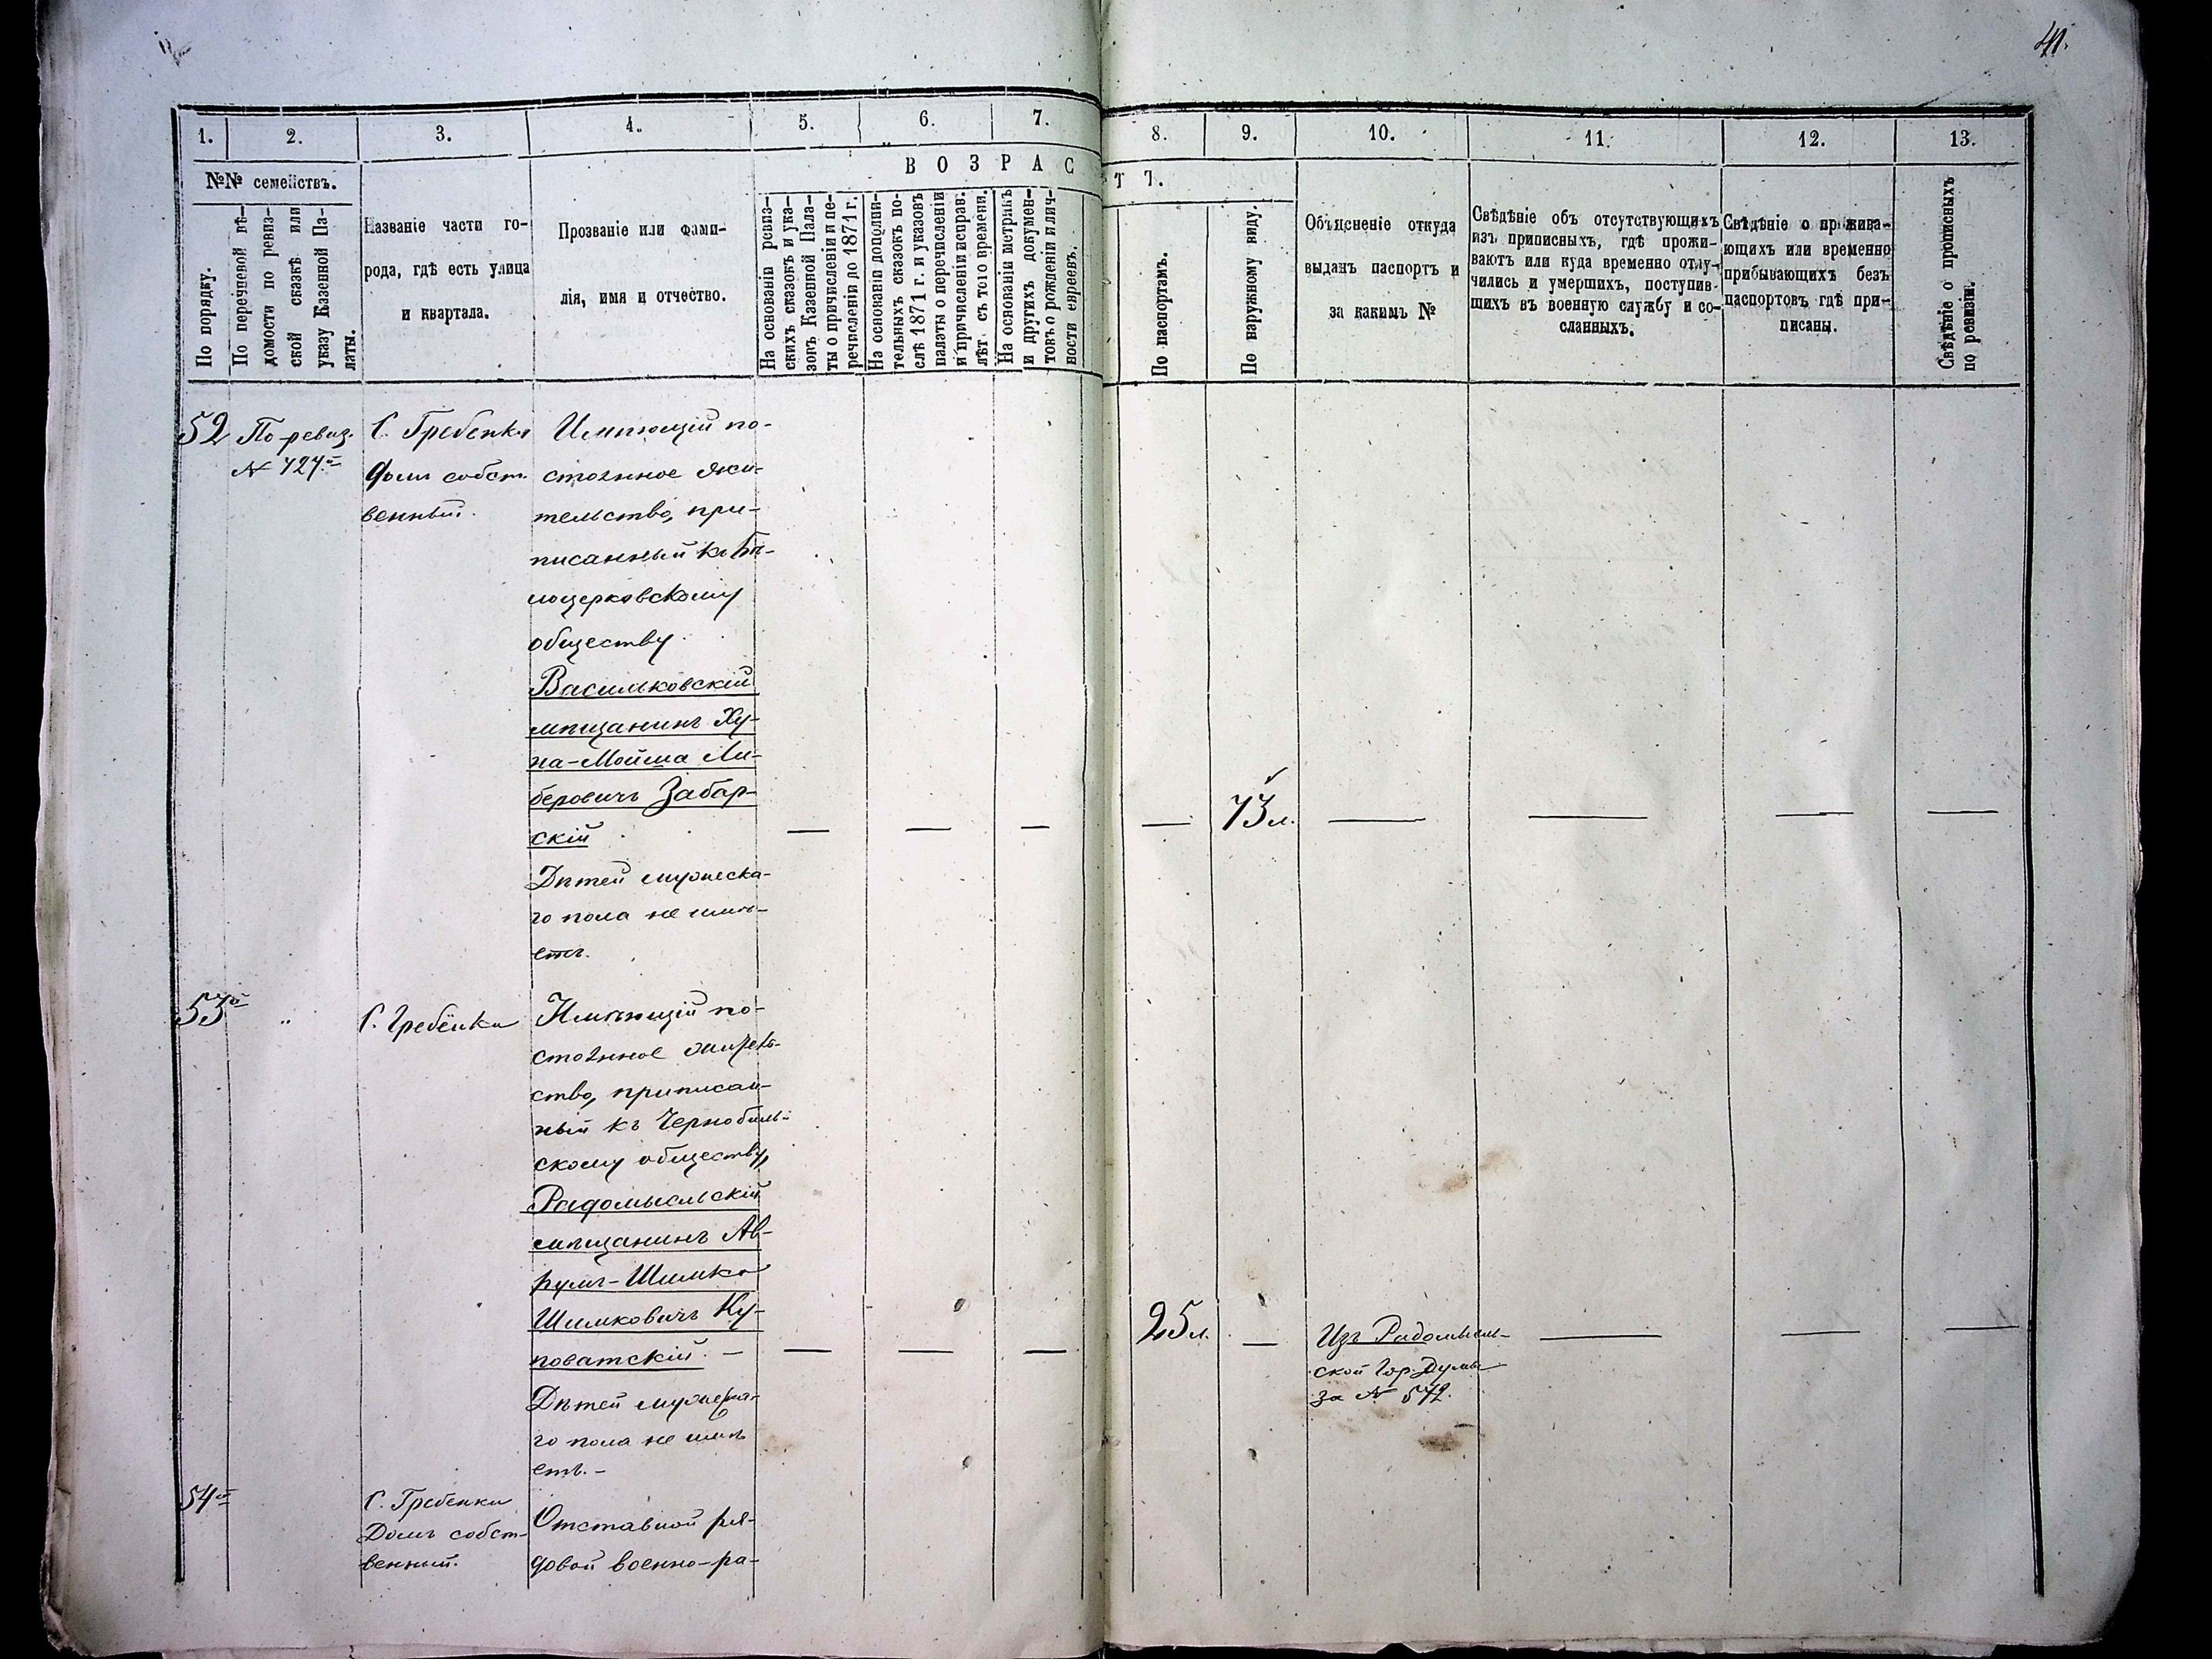 41.
1.
2.
3.
4.
5.
6.
7.
8.
9.
10.
11.
12.
13.
№№ семействъ.
В О З Р А С Т Ъ.
По порядку.
По перечневой вѣ-
домости по ревиз-
ской сказкѣ или
указу Казенной Па-
латы.
Названіе части го-
рода, гдѣ есть улица
и квартала.
Прозваніе или фами-
лія, имя и отчество.
На основаніи ревиз-
скихъ сказокъ и ука-
зовъ Казенной Пала-
ты о причисленіи и пе-
речисленіи до 1871 г.
На основаніи дополни-
тельныхъ сказокъ по-
слѣ 1871 г. и указовъ
палаты о перечисленіи
и причисленіи исправ.
лѣтъ съ того времени.
На основаніи метрикъ
и другихъ докумен-
товъ о рожденіи и лич-
ности евреевъ.
По паспортамъ.
По наружному виду.
Объясненіе откуда
выданъ паспортъ и
за какимъ №
Свѣдѣніе объ отсутствующихъ
изъ приписныхъ, гдѣ прожи-
ваютъ или куда временно отлу-
чились и умершихъ, поступив-
шихъ въ военную службу и со-
сланныхъ.
Свѣдѣніе о прожива-
ющихъ или временно
прибывающихъ безъ
паспортовъ гдѣ при-
писаны.
Свѣдѣніе о прописныхъ
по ревизіи.
52
По ревиз.
№ 424й
С. Гребенки
Домъ собст-
венный.
Имѣющій по-
стоянное жи-
тельство, при-
писанный къ Бѣ-
лоцерковскому
обществу
Васильковскій
мѣщанинъ Ху-
на-Мойша Ли-
беровичъ Забар-
скій
— — — — 73 л. — — — —
Дѣтей мужеска-
го пола не имѣ-
етъ.
53й
"
С. Гребёнки
Имѣющій по-
стоянное житель-
ство, приписан-
ный къ Чернобыль-
скому обществу,
Радомысльскій
мѣщанинъ Ав-
румъ-Шимко
Шимковичъ Ку-
поватскій. —
— — — 25 л. — Изъ Радомысль-
ской Гор. Думы
за № 572.
— — —
Дѣтей мужеска-
го пола не имѣ
етъ. –
54й
С. Гребенки
Домъ собст-
венный.
Отставной ря-
довой военно-ра-